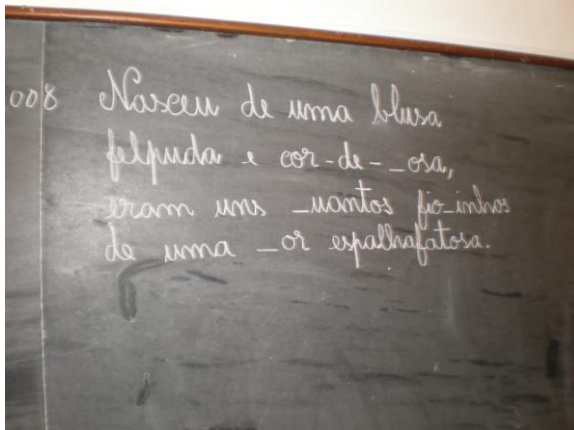 008
Nasceu de uma blusa
felpuda e cor-de-_osa,
eram uns _uantos fio_inhos
de uma _or espalhafatosa.